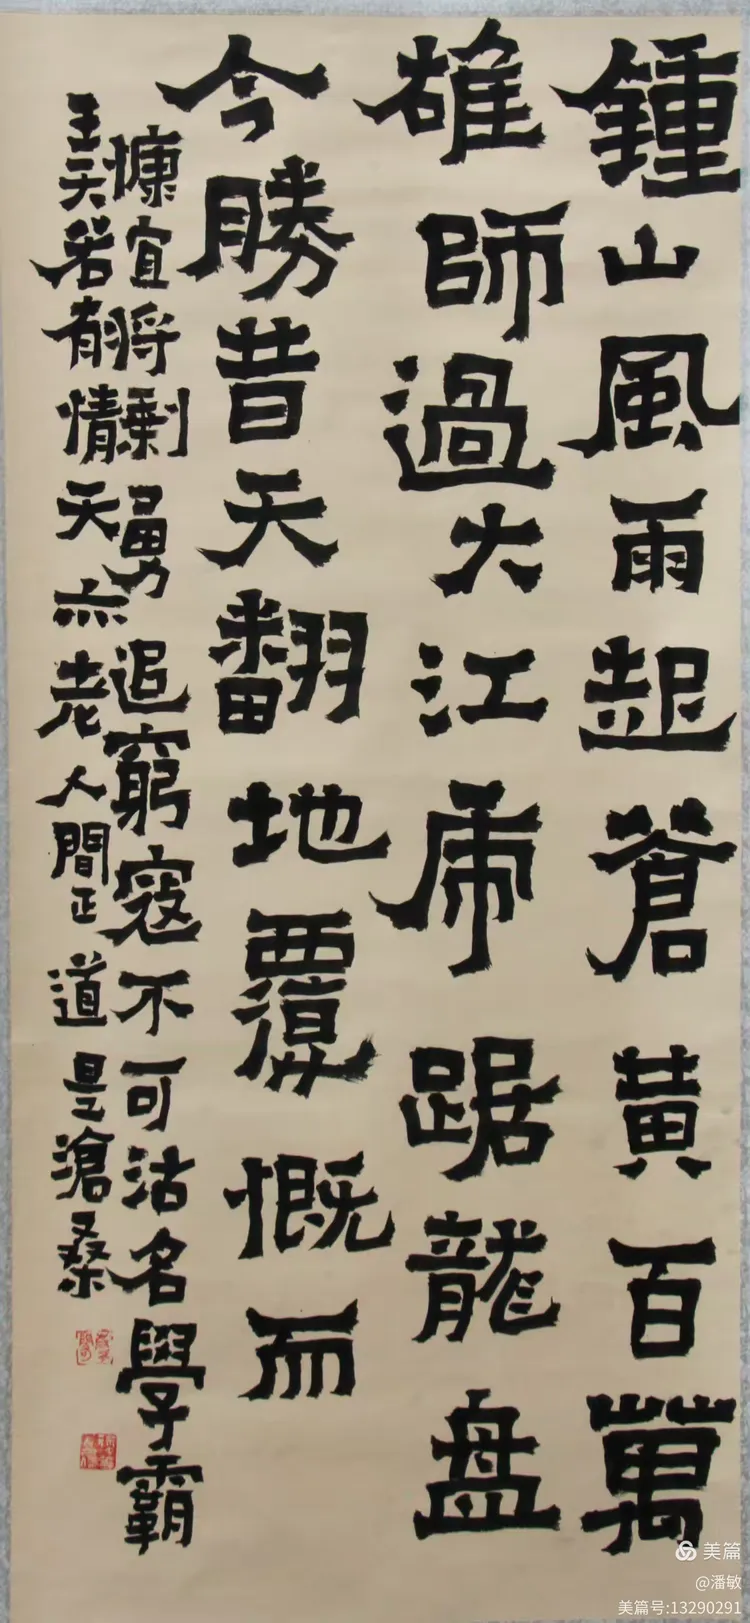 鍾山風雨起蒼黃百萬
雄師過大江虎踞龍盤
今勝昔天翻地覆慨而
慷宜將剩勇追窮寇不可沽名學霸
王天若有情天亦老人間正道是滄桑
美篇
@潘敏
美篇号:13290291